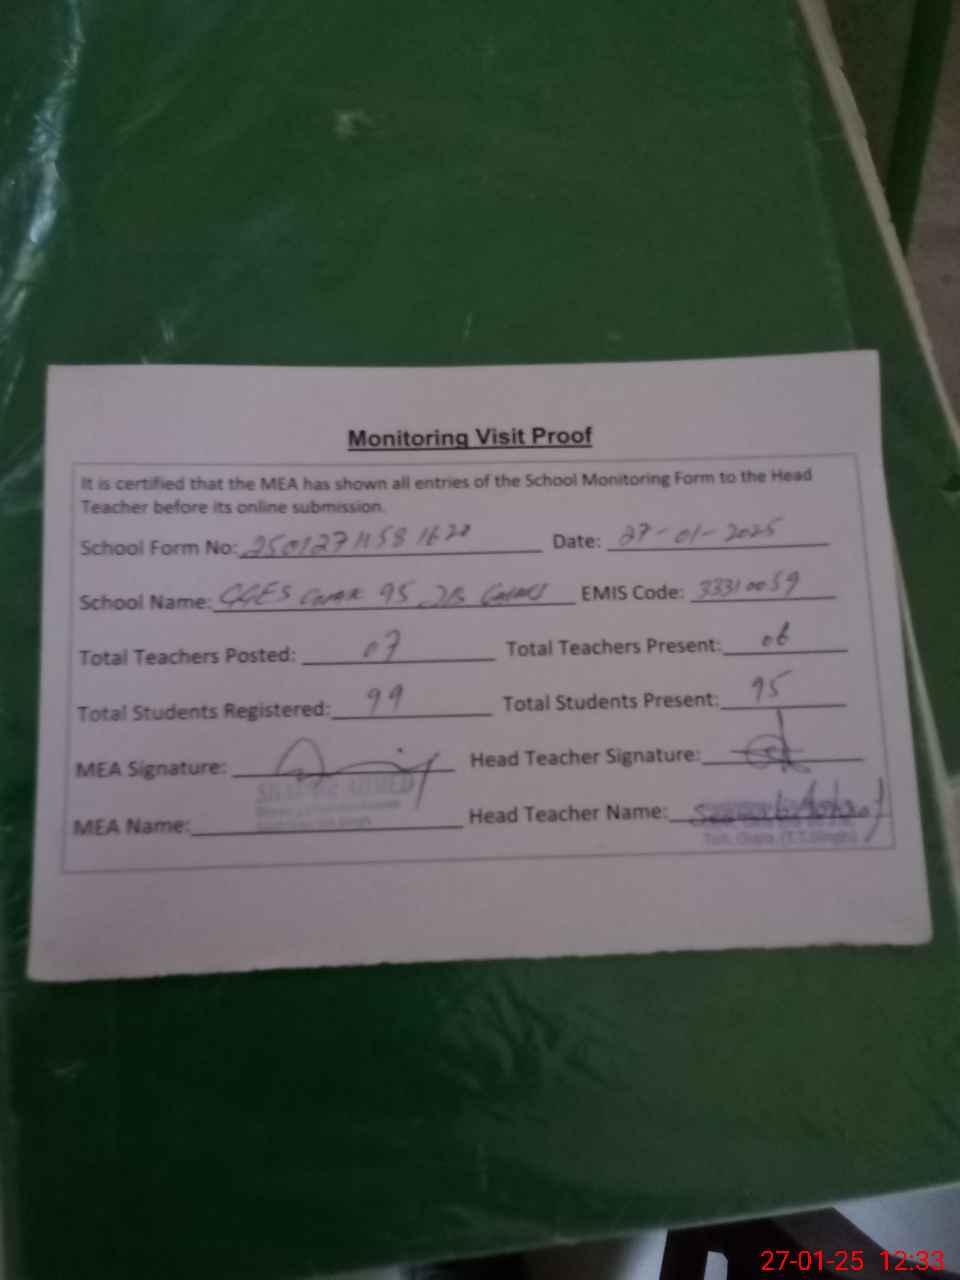 Monitoring Visit Proof
It is certified that the MEA has shown all entries of the School Monitoring Form to the Head
Teacher before its online submission.
School Form No: 2501271158 1620 Date: 27-01-2025
School Name: GGES 95 JB EMIS Code: 33310059
Total Teachers Posted: 07 Total Teachers Present: 06
Total Students Registered: 99 Total Students Present: 95
MEA Signature: Head Teacher Signature:
AHMED
MEA Name: Head Teacher Name:
(T.T.Singh)
27-01-25 12:33